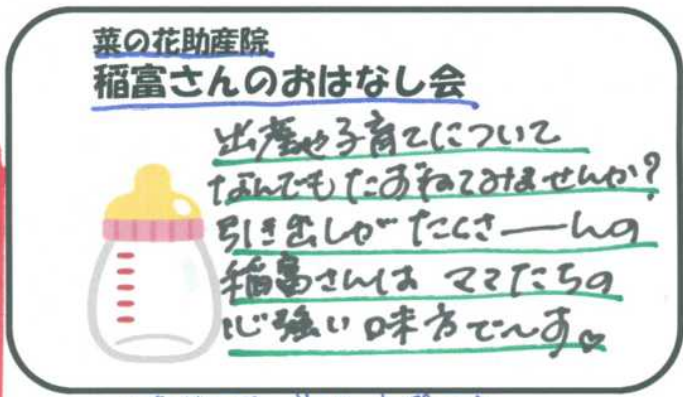 菜の花助産院
稲富さんのおはなし会
出産や子育てについて
なんでもたずねてみませんか?
引き出しが たくさ——んの
稲富さんは ママたちの
心強い味方で〜す♡